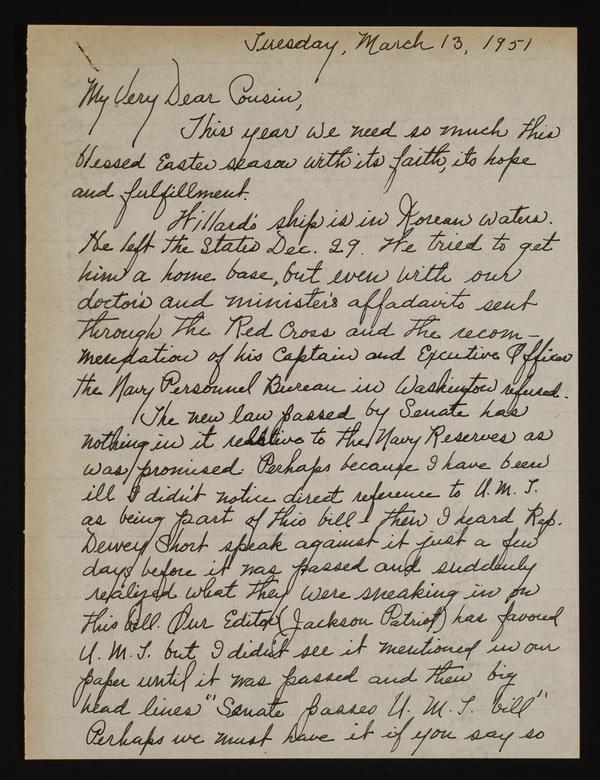 Tuesday, March 13, 1951
My Very Dear Cousin,
This year we need so much this
blessed Easter season with its faith, its hope
and fulfillment.
Hillard's ship is in Korean waters.
He left the States Dec. 29. We tried to get
him a home base, but even with our
doctor's and minister's affadavits sent
through the Red Cross and the recom-
mendation of his Captain and Excutive Officer
the Navy Personnel Bureau in Washington refused.
The new law passed by Senate has
nothing in it relative to the Navy Reserves as
was promised. Perhaps because I have been
ill I didn't notice direct reference to U.M.T.
as being part of this bill - then I heard Rep.
Dewey Short speak against it just a few
days before it was passed and suddenly
realized what they were sneaking in on
this bill. Our Editor (Jackson Patriot) has favored
U.M.T. but I didn't see it mentioned in our
paper until it was passed and then big
head lines "Senate passes U.M.T. bill"
Perhaps we must have it if you say so